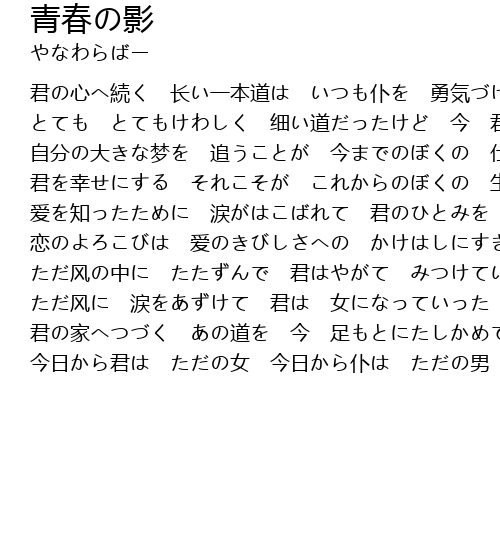 青春の影
やなわらばー
君の心へ続く　长い一本道は　いつも仆を　勇気づけ
とても　とてもけわしく　细い道だったけど　今　君
自分の大きな梦を　追うことが　今までのぼくの　仕
君を幸せにする　それこそが　これからのぼくの　生
爱を知ったために　涙がはこばれて　君のひとみを
恋のよろこびは　爱のきびしさへの　かけはしにすぎ
ただ风の中に　たたずんで　君はやがて　みつけてい
ただ风に　涙をあずけて　君は　女になっていった
君の家へつづく　あの道を　今　足もとにたしかめて
今日から君は　ただの女　今日から仆は　ただの男